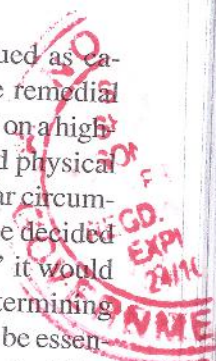 ued as ca-
e remedial
on a high-
d physical
ar circum-
e decided
” it would
termining
be essen-
GD.
EXPI
24/1
ERNME